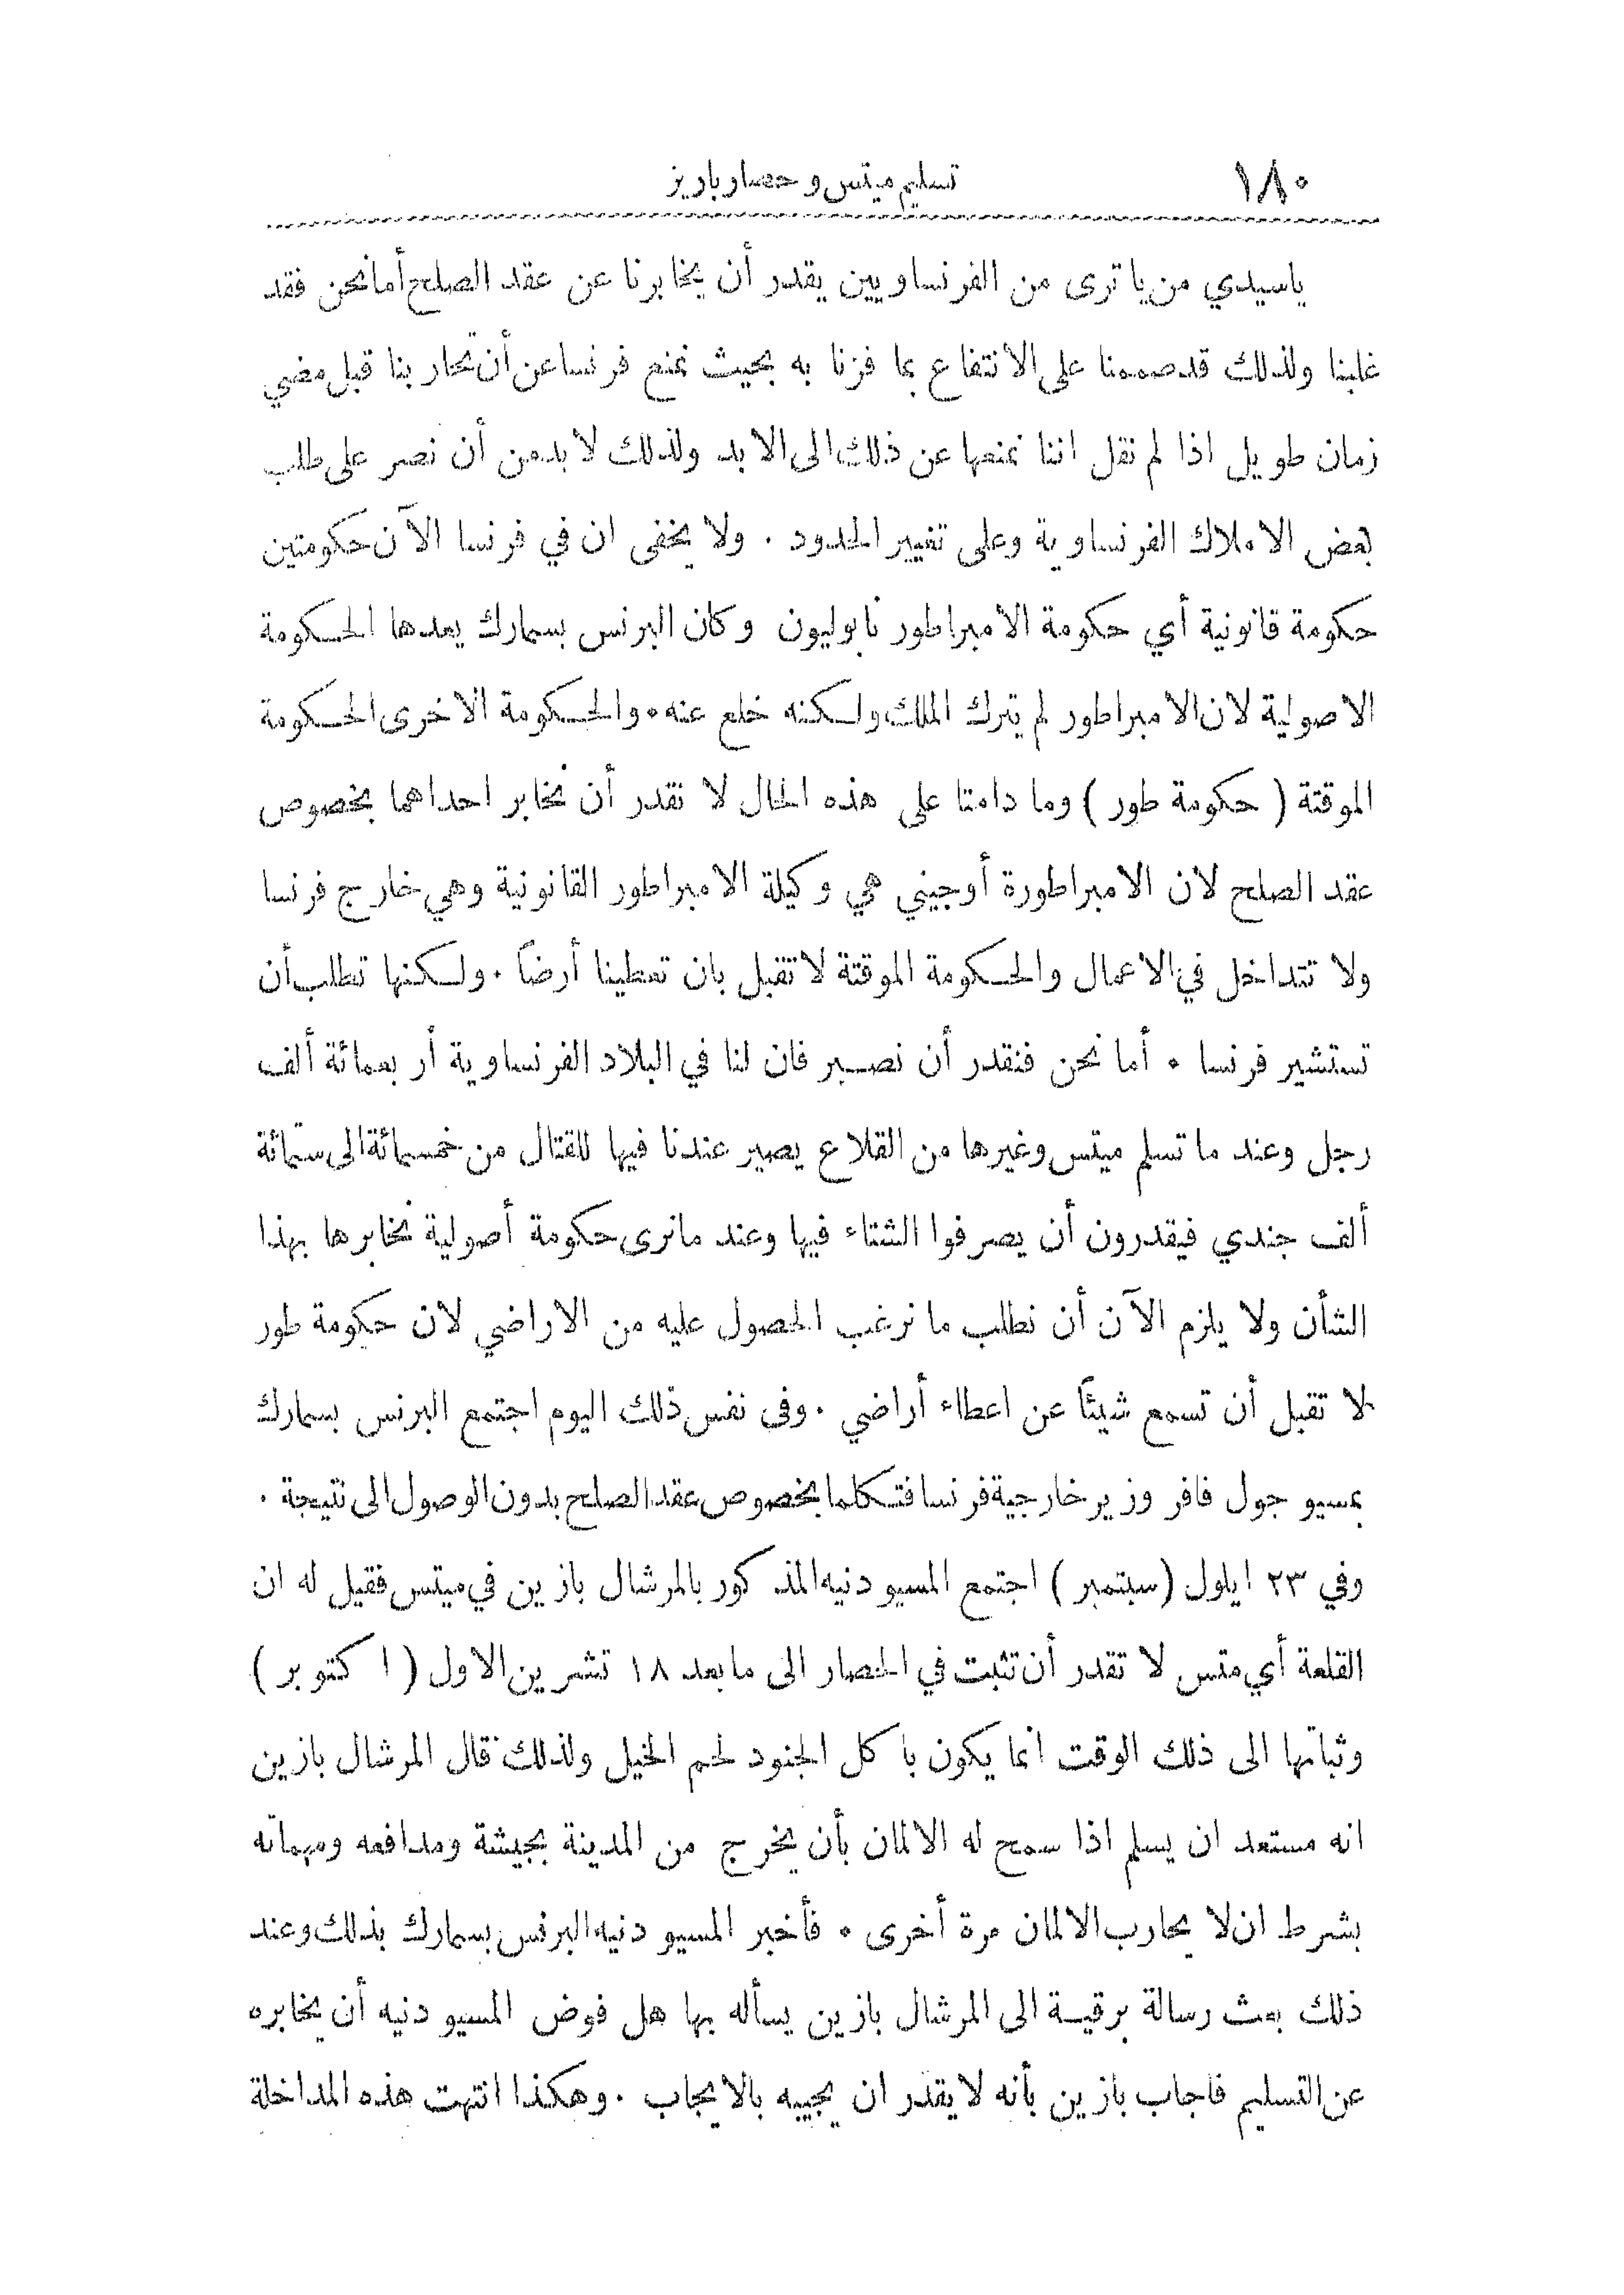 ١٨٠ تسليم ميتس وحصار باريز
ياسيدي من يا ترى من الفرنساويين يقدر أن يخابرنا عن عقد الصلح أما نحن فقد
غلبنا ولذلك قد صممنا على الانتفاع بما فزنا به بحيث نمنع فرنسا عن أن تحاربنا قبل مضي
زمان طويل اذا لم نقل اننا نمنعها عن ذلك الى الابد ولذلك لا بد من أن نصر على طلب
بعض الاملاك الفرنساوية وعلى تغيير الحدود . ولا يخفى ان في فرنسا الآن حكومتين
حكومة قانونية أي حكومة الامبراطور نابوليون وكان البرنس بسمارك يعدها الحكومة
الاصولية لان الامبراطور لم يترك الملك ولكنه خلع عنه . والحكومة الاخرى الحكومة
الموقتة ( حكومة طور ) وما دامتا على هذه الحال لا نقدر أن نخابر احداهما بخصوص
عقد الصلح لان الامبراطورة أوجيني هي وكيلة الامبراطور القانونية وهي خارج فرنسا
ولا تتداخل في الاعمال والحكومة الموقتة لا تقبل بان تعطينا أرضاً . ولكنها تطلب أن
تستشير فرنسا . أما نحن فنقدر أن نصبر فان لنا في البلاد الفرنساوية أربعمائة ألف
رجل وعند ما تسلم ميتس وغيرها من القلاع يصير عندنا فيها للقتال من خمسمائة الى ستمائة
ألف جندي فيقدرون أن يصرفوا الشتاء فيها وعند ما نرى حكومة أصولية نخابرها بهذا
الشأن ولا يلزم الآن أن نطلب ما نرغب الحصول عليه من الاراضي لان حكومة طور
لا تقبل أن تسمع شيئاً عن اعطاء أراضي . وفى نفس ذلك اليوم اجتمع البرنس بسمارك
بمسيو جول فافر وزير خارجية فرنسا فتكلما بخصوص عقد الصلح بدون الوصول الى نتيجة .
وفي ٢٣ ايلول (سبتمبر ) اجتمع المسيو دنيه المذكور بالمرشال بازين في ميتس فقيل له ان
القلعة أي متس لا تقدر أن تثبت في الحصار الى ما بعد ١٨ تشرين الاول ( اكتوبر )
وثباتها الى ذلك الوقت انما يكون باكل الجنود لحم الخيل ولذلك قال المرشال بازين
انه مستعد ان يسلم اذا سمح له الالمان بأن يخرج من المدينة بجيشة ومدافعه ومهماته
بشرط ان لا يحارب الالمان مرة أخرى . فأخبر المسيو دنيه البرنس بسمارك بذلك وعند
ذلك بعث رسالة برقية الى المرشال بازين يسأله بها هل فوض المسيو دنيه أن يخابره
عن التسليم فاجاب بازين بأنه لا يقدر ان يجيبه بالايجاب . وهكذا انتهت هذه المداخلة